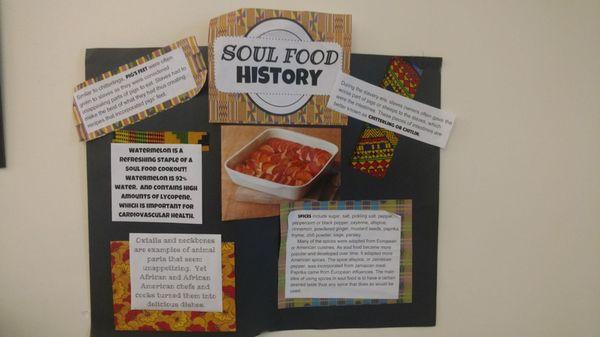 SOUL FOOD
HISTORY
Similar to chitterlings, PIG'S FEET were often
given to slaves as they were considered
unappealing parts of pigs to eat. Slaves had to
make the best of what they had thus creating
recipes that incorporated pigs feet.
During the slavery era, slaves owners often gave the
worse part of pigs or sheeps to the slaves, which
were the intestines. These pieces of intestines are
better known as CHITTERLING OR CHITLIN.
WATERMELON IS A
REFRESHING STAPLE OF A
SOUL FOOD COOKOUT!
WATERMELON IS 92%
WATER, AND CONTAINS HIGH
AMOUNTS OF LYCOPENE,
WHICH IS IMPORTANT FOR
CARDIOVASCULAR HEALTH.
Oxtails and neckbones
are examples of animal
parts that seem
unappetizing. Yet
African and African
American chefs and
cooks turned them into
delicious dishes.
SPICES include sugar, salt, pickling salt, pepper,
peppercorn or black pepper, cayenne, allspice,
cinnamon, powdered ginger, mustard seeds, paprika,
thyme, chili powder, sage, parsley.
Many of the spices were adapted from European
or American cuisines. As soul food became more
popular and developed over time. It adapted more
American spices. The spice allspice, or Jamaican
pepper, was incorporated from Jamaican meal.
Paprika came from European influences. The main
idea of using spices in soul food is to have a certain
desired taste thus any spice that does so would be
used.